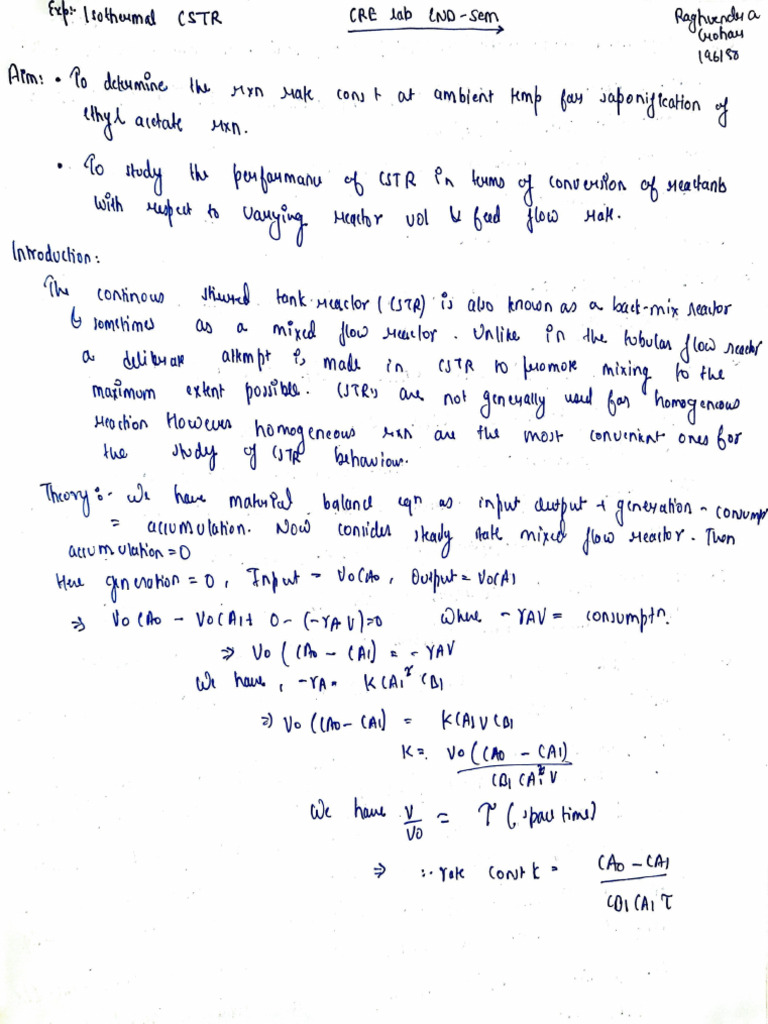 Exp:- Isothermal CSTR
CRE lab END-Sem
Raghvendra
196150
Aim: • To determine the rxn rate const at ambient temp for saponification of
ethyl acetate rxn.
• To study the performance of CSTR in terms of conversion of reactants
with respect to varying reactor vol & feed flow rate.
Introduction:
The continous stirred tank reactor (CSTR) is also known as a back-mix reactor
& sometimes as a mixed flow reactor. Unlike in the tubular flow reactor
a deliberate attempt is made in CSTR to promote mixing to the
maximum extent possible. CSTRs are not generally used for homogeneous
reaction However homogeneous rxn are the most convenient ones for
the study of CSTR behaviour.
Theory:- We have material balance eqn as input output + generation - consumpt
= accumulation. Now consider steady state mixed flow reactor. Then
accumulation = 0
Here generation = 0, Input = V0CA0, Output = V0CA1
⇒ V0CA0 - V0CA1 + 0 - (-rAV) = 0 Where -rAV = consumptn.
⇒ V0(CA0 - CA1) = -rAV
We have, -rA = KCA1 CB1
⇒ V0(CA0 - CA1) = KCA1VCB1
K = V0(CA0 - CA1)
CB1CA1V
We have V/V0 = τ (space time)
⇒ ∴ rate const k = CA0 - CA1
CB1CA1τ